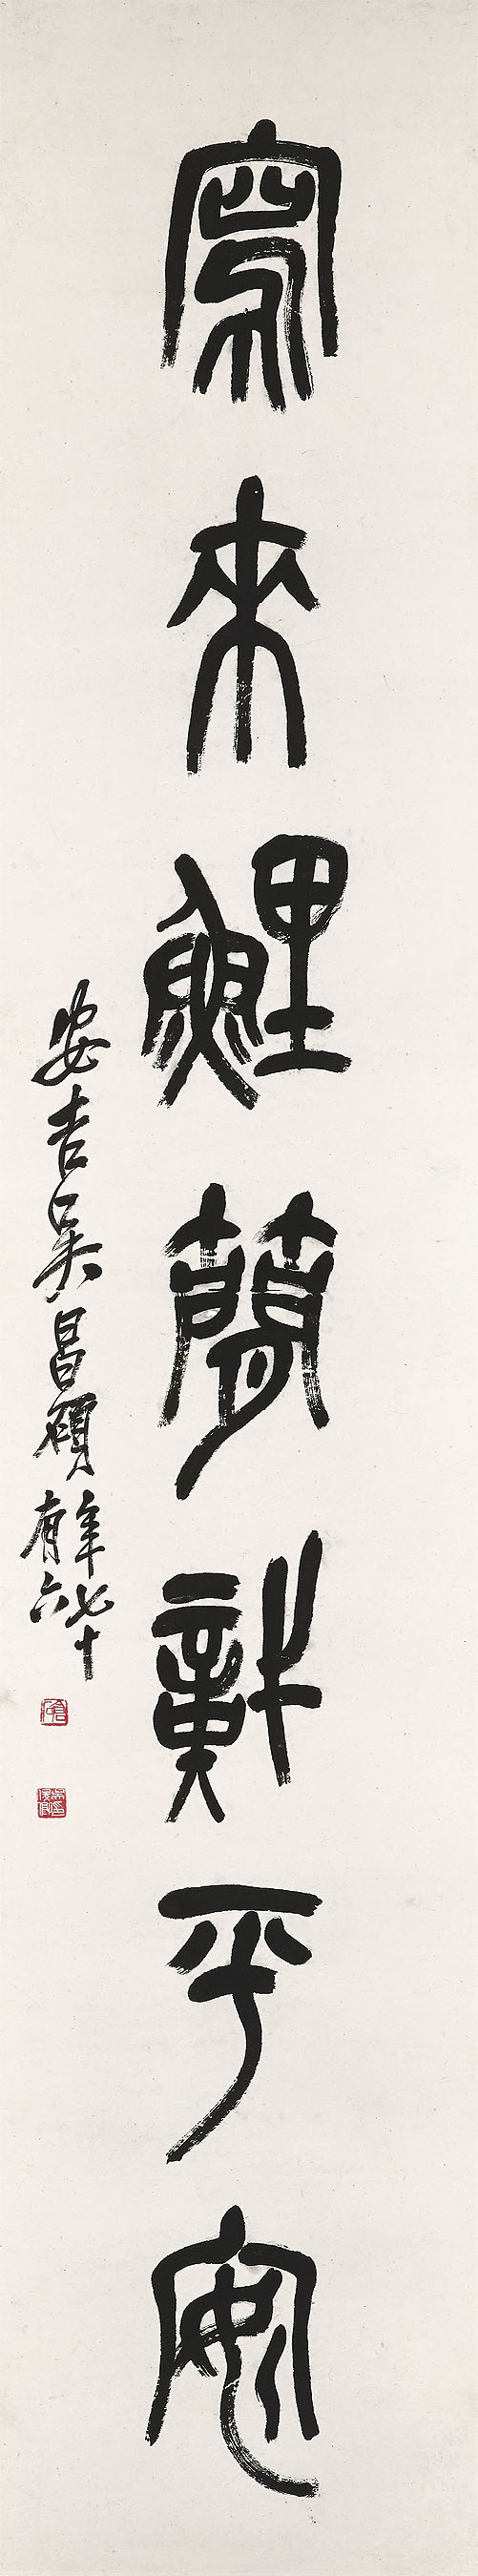 寫來鯉簡平安
安吉吳昌碩
年七十
有六